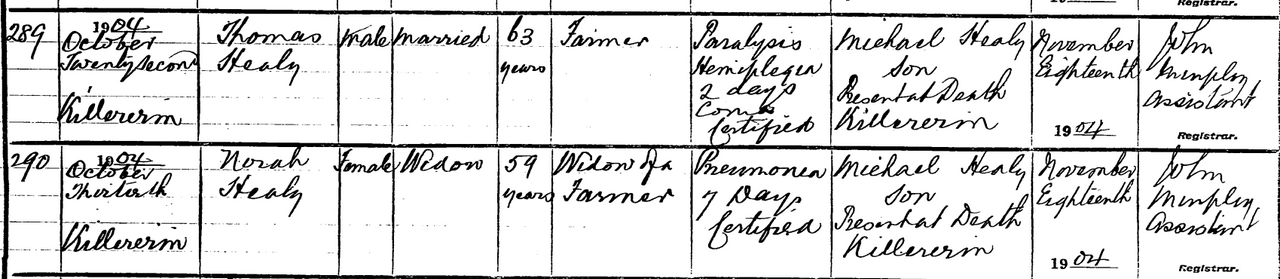 Registrar.
289
1904
October
Twenty second
Killererin
Thomas
Healy
Male
Married
63
years
Farmer
Paralysis
Hemiplegia
2 days
Coma
Certified
Michael Healy
Son
Present at Death
Killererin
November
Eighteenth
1904
John
Assistant
Registrar.
290
1904
October
Thirtieth
Killererin
Norah
Healy
Female
Widow
59
years
Widow of a
Farmer
Pneumonia
7 Days
Certified
Michael Healy
Son
Present at Death
Killererin
November
Eighteenth
1904
John
Assistant
Registrar.